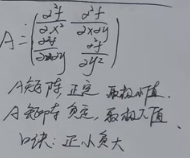 A = ( ∂²f/∂x² ∂²f/∂x∂y
∂²f/∂x∂y ∂²f/∂y² )
A矩阵 正定 取极小值.
A矩阵 负定, 取极大值.
口诀: 正小负大